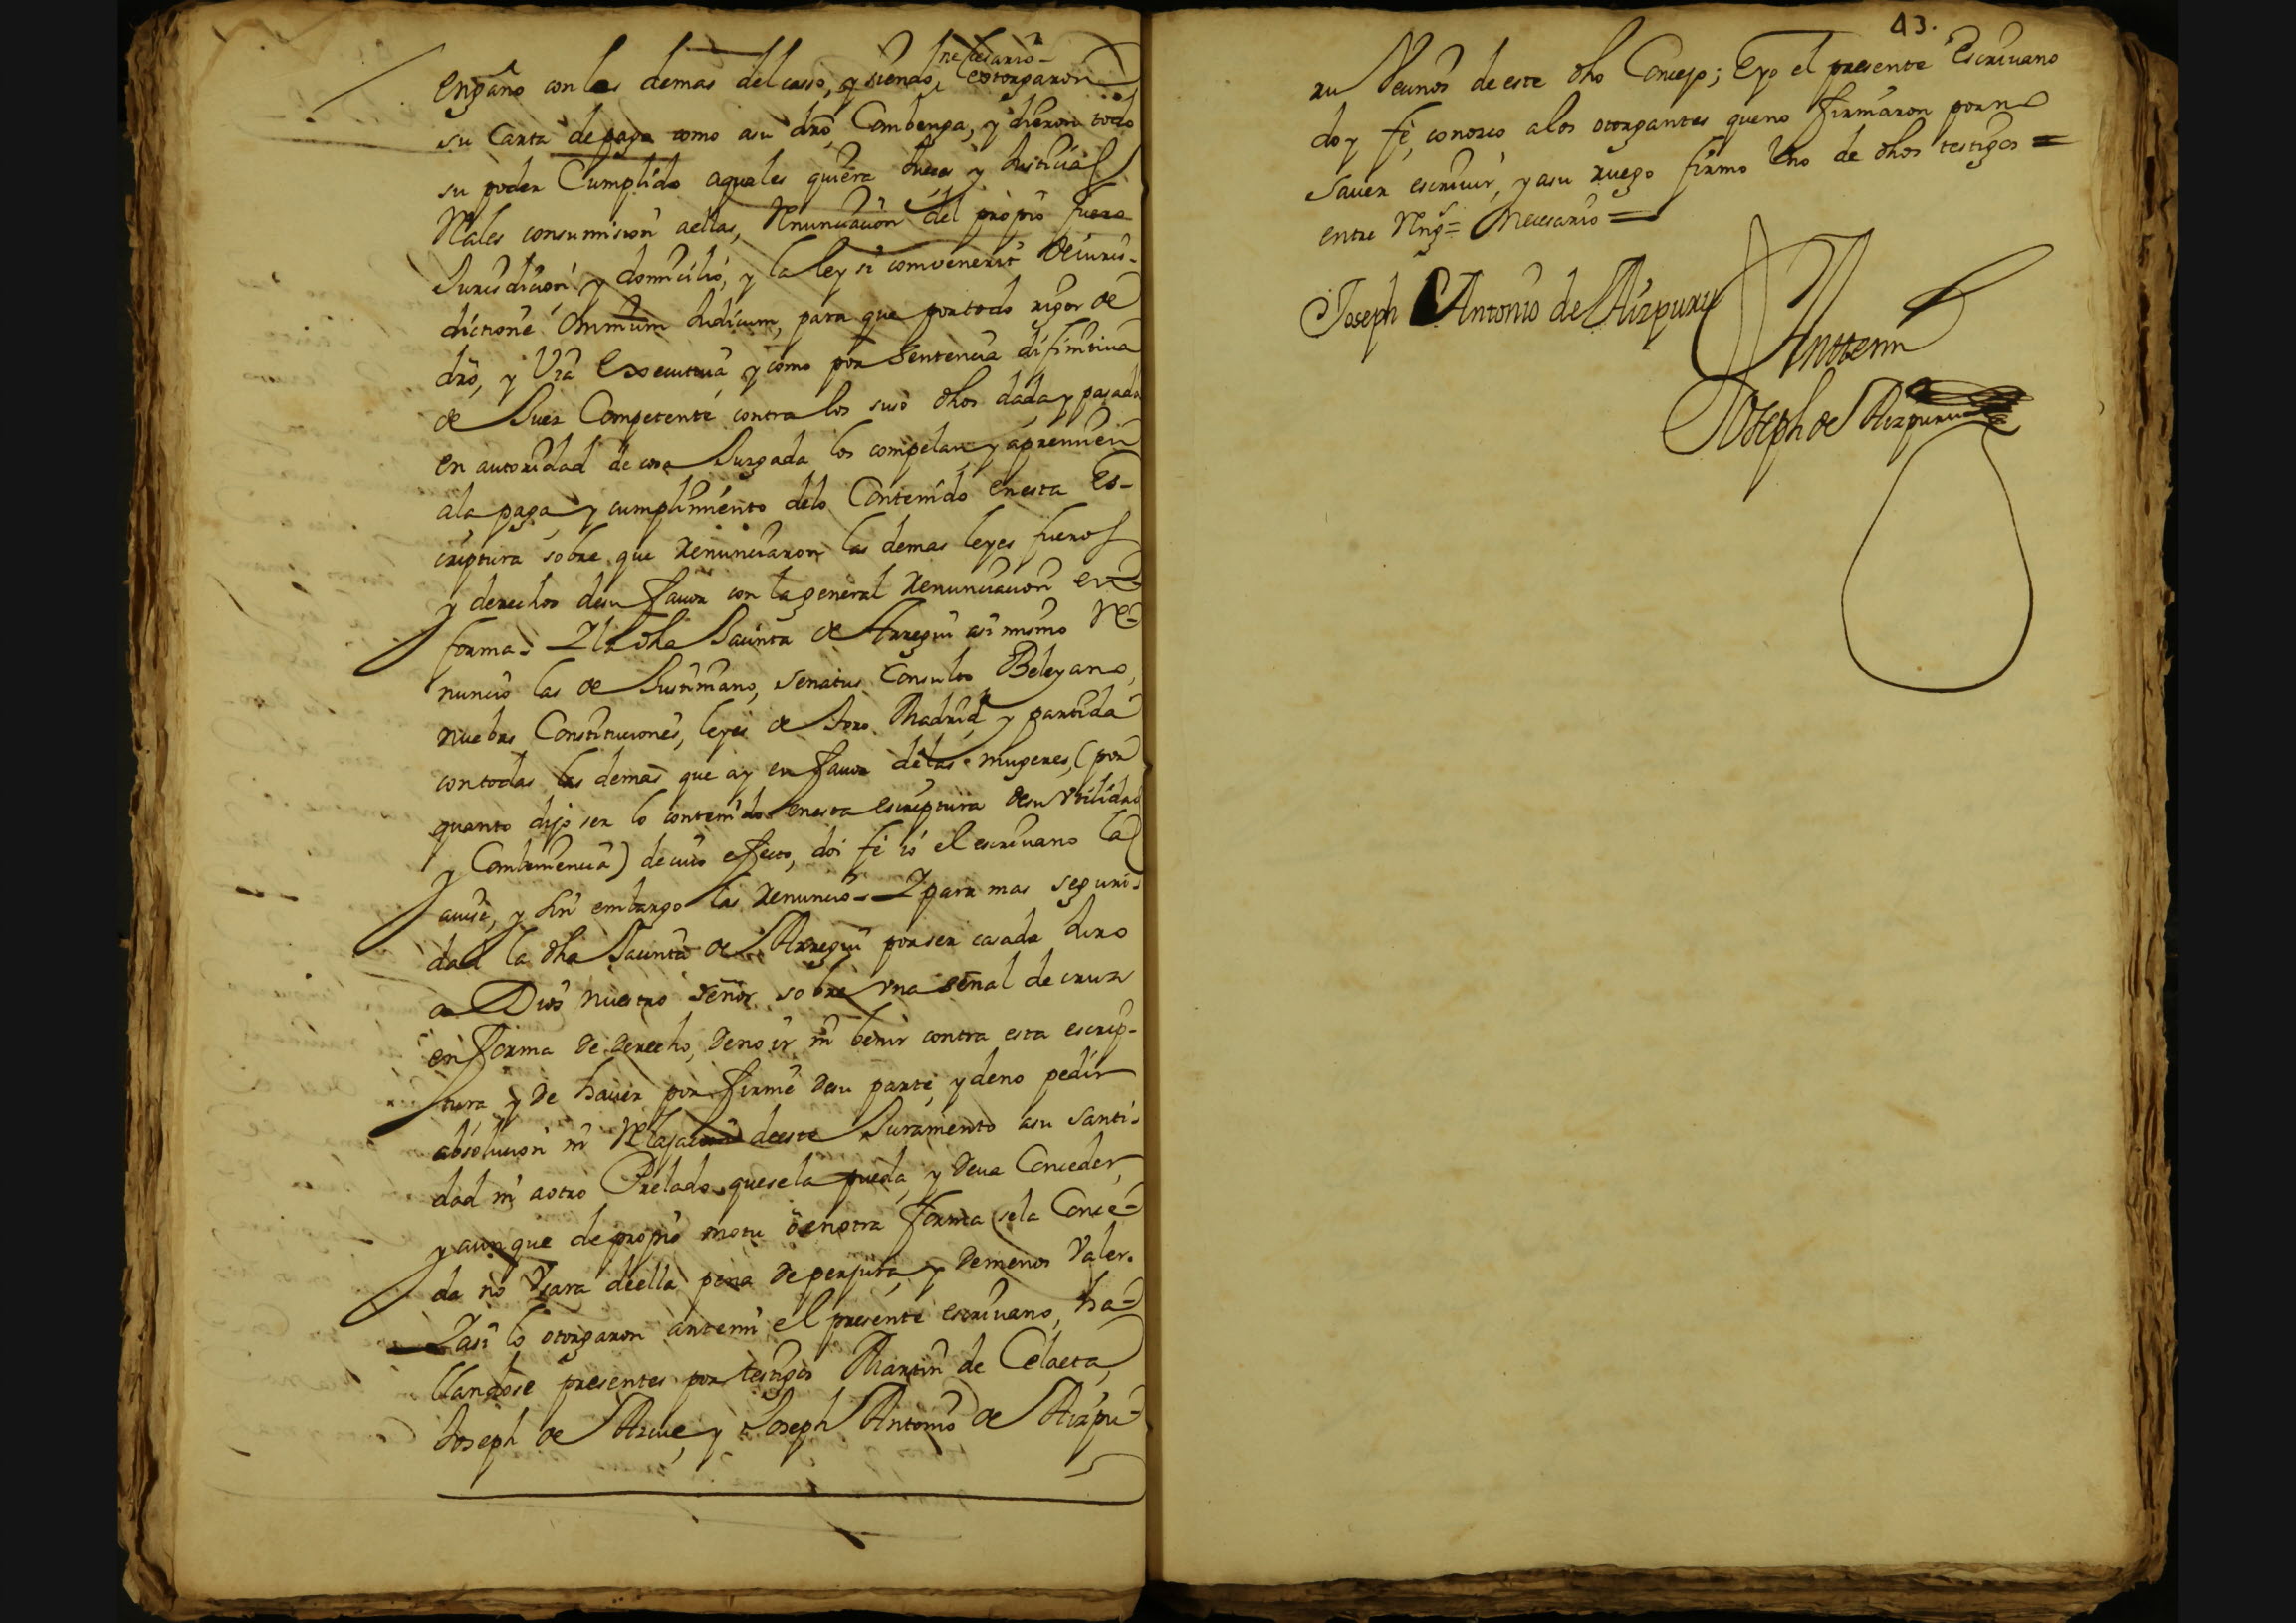 engaño con las demas del casso, y siendo necesario otorgaron
su Carta de paga como a su dro Combenga, y dieron todo
su poder Cumplido aquales quiera Jueces y Justicias
Reales con sumision aellas, Renunciacion del propio fuero
Jurisdicion y domicilio, y la ley si combenerit de iuris-
dictione omnium Judicum, para que portodo rigor de
dro, y Via Executiva y como por sentencia difinitiva
de Juez Competente contra los suso dhos dada y pasada
en autoridad de cosa Juzgada los compelan y apremien
ala paga y cumplimiento delo Contenido enesta Es-
criptura sobre que renunciaron las demas leyes fueros
y derechos desu fauor con la general renunciacion en
forma. Y la dha Jacinta de Arregui asi mismo Re-
nuncio las de Justiniano, senatus Consulto Beleyano,
nuebas Constituciones, leyes de toro Madrid y partida
con todas las demas que ay en fauor delas mugeres, (por
quanto dijo ser lo contenido enesta escriptura desu Vtilidad
y Combeniencia) decuio efecto, doi fe io el escriuano la
auise, y sin embargo las renuncio. Y para mas seguri-
dad la dha Jacinta de Arregui por ser casada Juro
a Dios nuestro señor sobre vna señal de cruz
en forma de derecho, de no ir ni benir contra esta escrip-
tura y de hauer por firme desu parte, y deno pedir
absolucion ni Relajacion deeste Juramento asu santi-
dad ni aotro Prelado quesela pueda y deua Conceder,
y aunque de propio motu ò en otra forma sela Conce-
da no Vsara deella pena de perjura, y demenos Valer.
Y asi lo otorgaron antemi el presente escriuano, ha-
llandose presentes por testigos Martin de Celaeta,
Joseph de Arcue, y Joseph Antonio de Aizpu-
43.
ru Vecinos de este dho Concejo; Eyo el presente Escriuano
doy fe, conozco alos otorgantes queno firmaron por no
sauer escriuir, y asu ruego firmo Vno de dhos testigos =
entre Reng.s = Necesario =
Joseph Antonio de Aizpuru
Anttemi
Joseph de Aizpuru